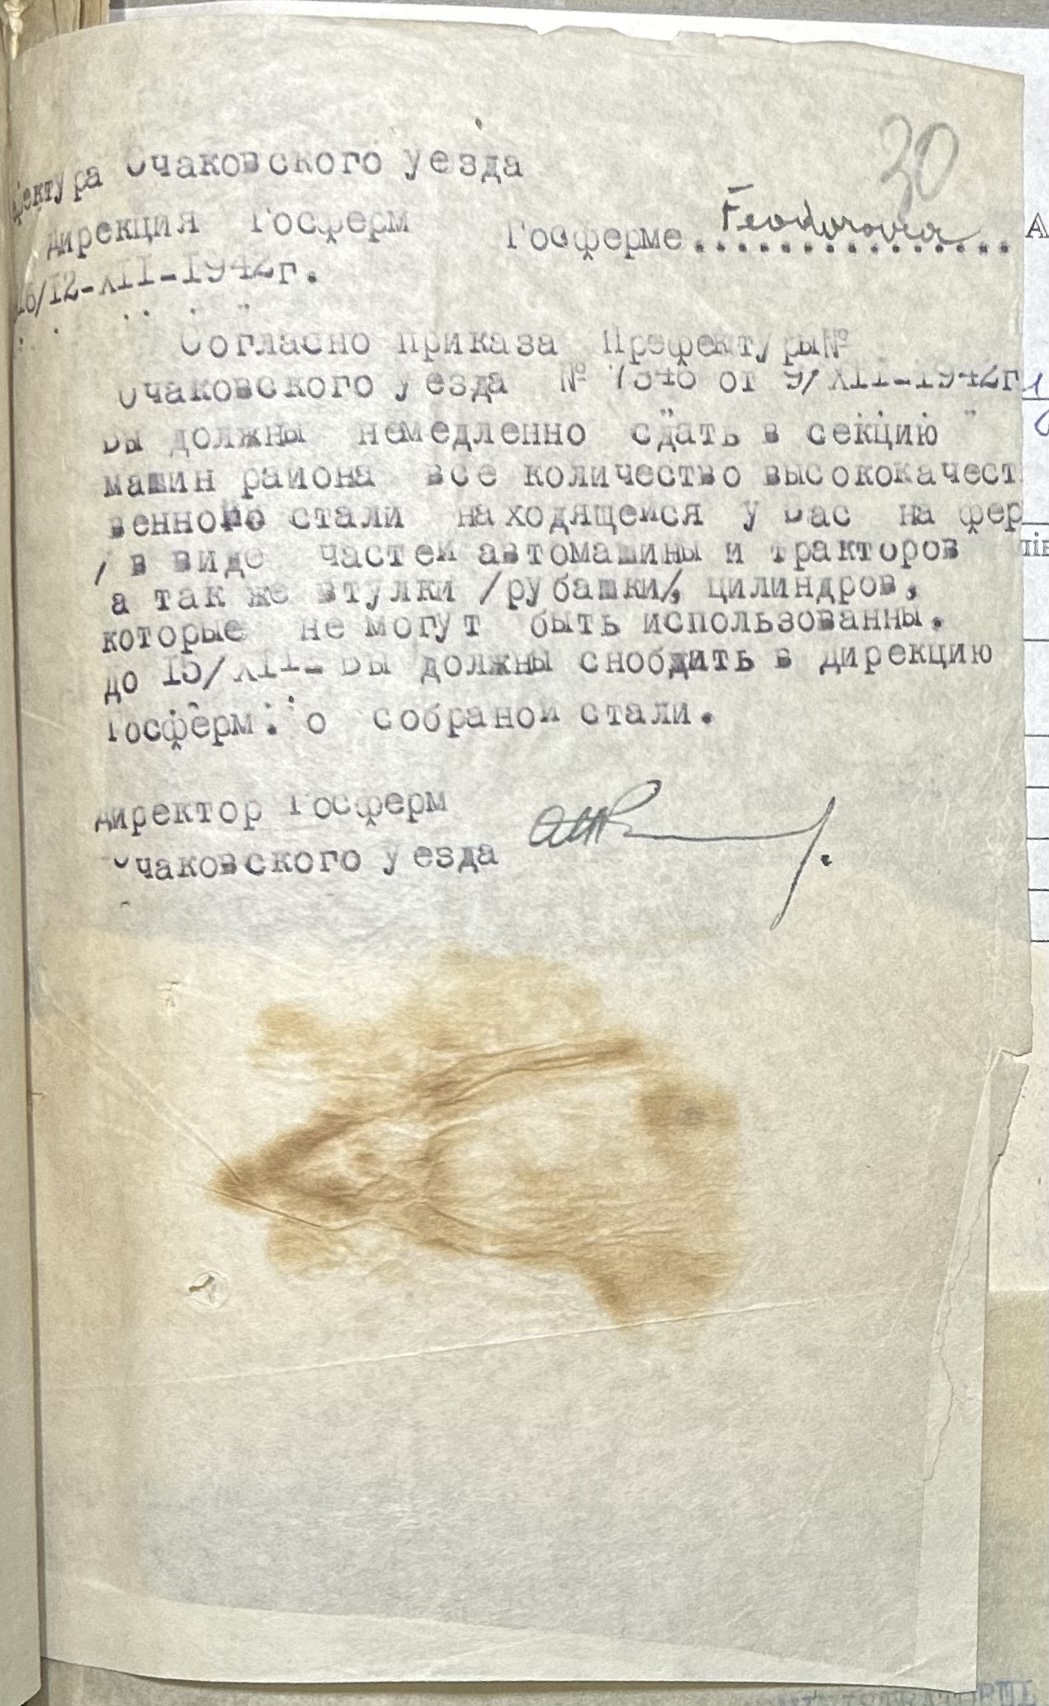 30
фектура Очаковского уезда
Дирекция Госферм Госферме Feodorovca
16/12-XII-1942г.
Согласно приказа Префектуры№
Очаковского уезда № 7346 от 9/XII-1942г
Вы должны немедленно сдать в секцию
машин района все количество высококачест
венного стали находящейся у Вас на фер
/ в виде частей автомашины и тракторов
а так же втулки /рубашки/, цилиндров,
которые не могут быть использованны.
до 15/XII- Вы должны снобдить в дирекцию
Госферм. о собраной стали.
Директор Госферм
Очаковского уезда